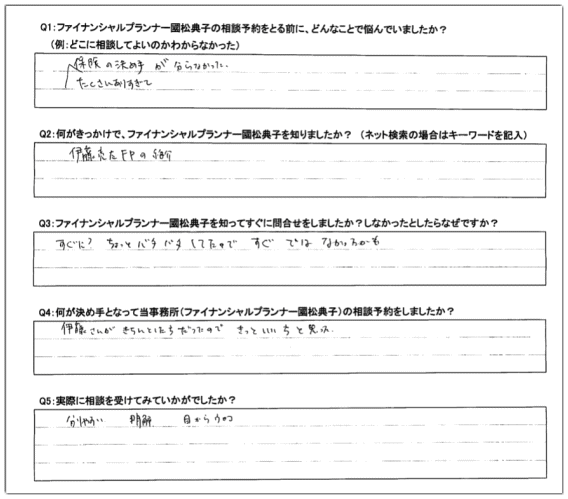 Q1:ファイナンシャルプランナー國松典子の相談予約をとる前に、どんなことで悩んでいましたか？
(例:どこに相談してよいのかわからなかった)
保険の決め手が分らなかった.
たくさんありすぎて
Q2:何がきっかけで、ファイナンシャルプランナー國松典子を知りましたか？ (ネット検索の場合はキーワードを記入)
伊藤亮太FPの紹介
Q3:ファイナンシャルプランナー國松典子を知ってすぐに問合せをしましたか？しなかったとしたらなぜですか？
すぐに? ちょっとバタバタしてたので すぐ では なかったかも
Q4:何が決め手となって当事務所(ファイナンシャルプランナー國松典子)の相談予約をしましたか？
伊藤さんが きちんとした だったので きっと いい と
Q5:実際に相談を受けてみていかがでしたか？
分りやすい 明解 目からウロコ